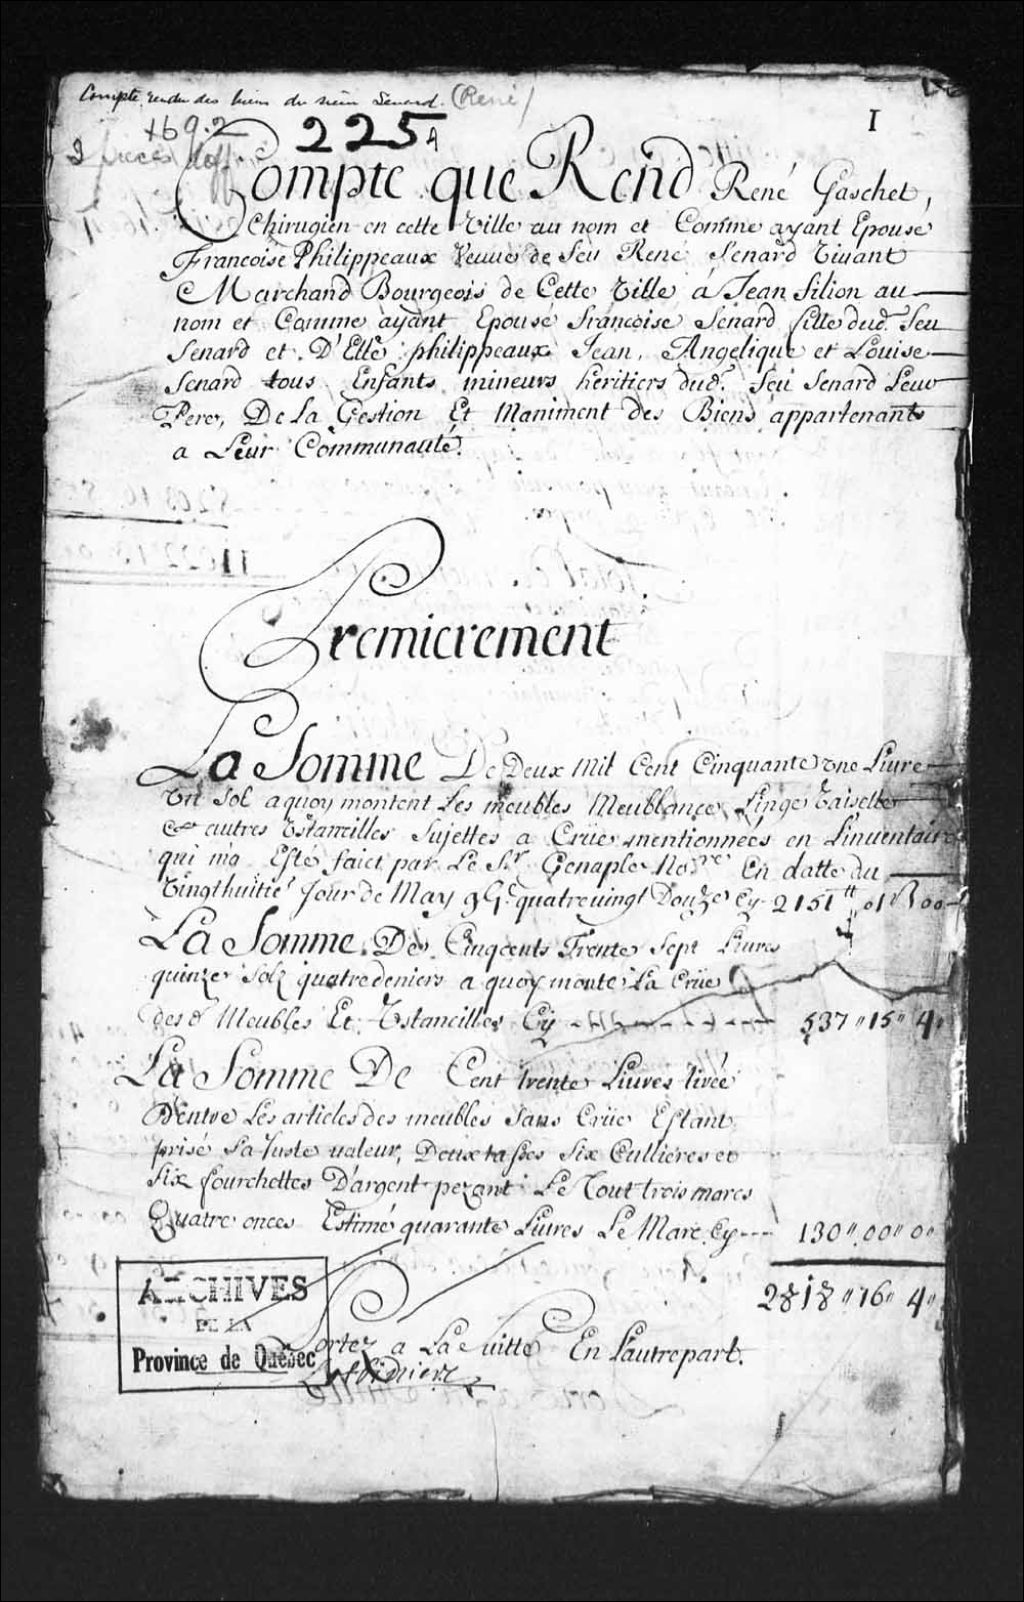 Compte rendu des biens du sieur Senard. (René)
1692
225A
I
2 pieces
Compte que Rend René Gaschet,
Chirugien en cette Ville au nom et Comme ayant Epousé
Francoise Philippeaux Veuve de feu René Senard Viuant
Marchand Bourgeois de Cette Ville á Jean filion au
nom et Comme ayant Epousé francoise Senard fille dud. feu
Senard et D'Elle philippeaux Jean, Angelique et Louise
Senard tous Enfants mineurs heritiers dud. feu Senard Leur
Pere, De La Gestion Et Maniment des Biens appartenants
a Leur Communauté.
Premierement
La Somme De Deux Mil Cent Cinquante vne Liure
Vn Sol aquoy montent Les meubles Meublance, Linge Vaiselle
et autres Vstancilles Sujettes a Crüe mentionnées en Linuentaire
qui m'a Esté faict par Le Sr. Genaple Nore. En datte du
Vingthuitie Jour de May 9Gc quatreuingt Douze Cy 2151tt 01ß 00
La Somme De Cinqcents Trente Sept Liures
quinze Solz quatre deniers a quoy monte La Crüe
desd Meubles Et Vstancilles Cy 537 " 15 " 4 "
La Somme De Cent trente Liures tirée
D'entre Les articles des meubles Sans Crüe Estant
prisé Sa Juste ualeur, Deux tasses Six Cullieres et
Six fourchettes D'argent pezant Le Tout trois marcs
Quatre onces Estimé quarante Liures Le Marc Cy 130 " 00 " 0 "
2818 " 16 " 4 "
Portez a La Suitte En L'autrepart.
ARCHIVES
DE LA
Province de Québec